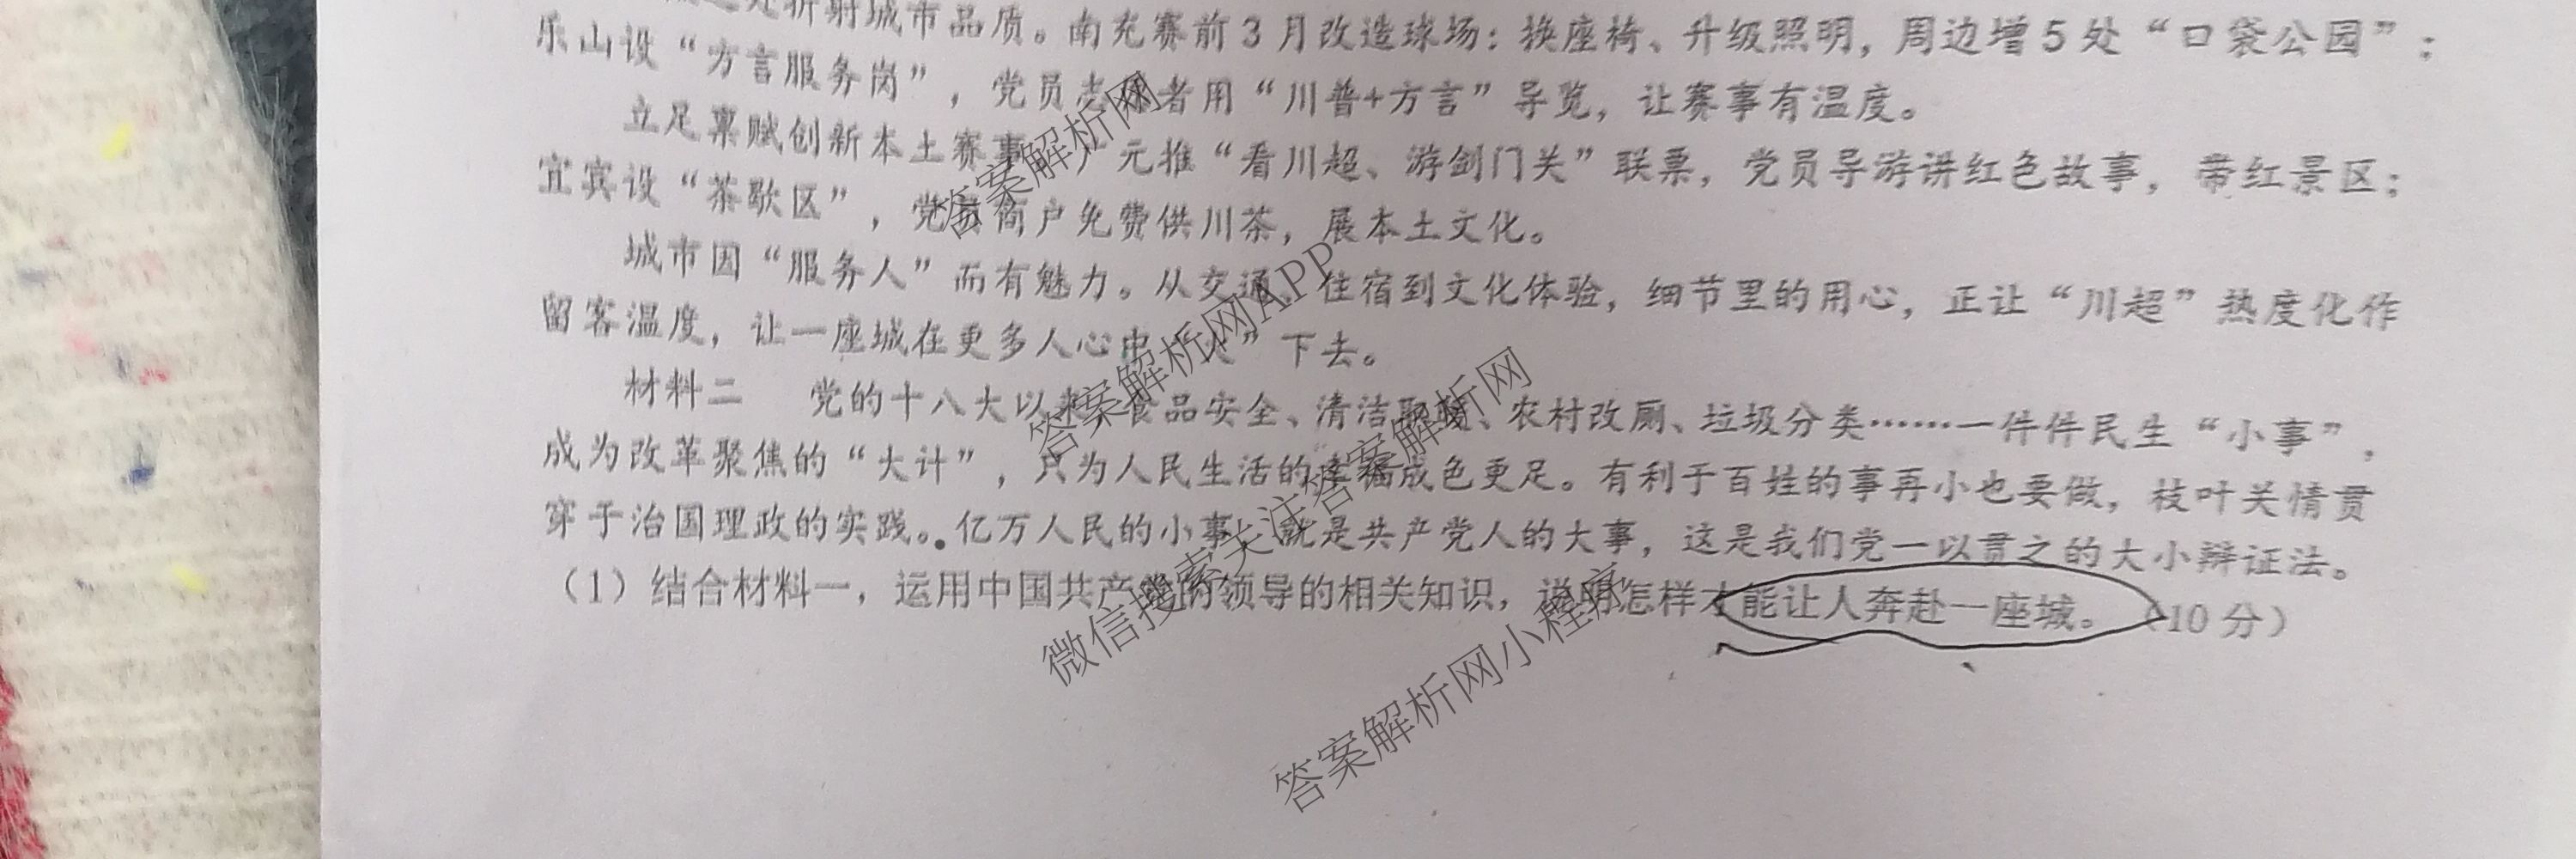 处折射城市品质。南充赛前3月改造球场：换座椅、升级照明，周边增5处“口袋公园”；
乐山设“方言服务岗”，党员志愿者用“川普+方言”导览，让赛事有温度。
立足禀赋创新本土赛事。广元推“看川超、游剑门关”联票，党员导游讲红色故事，带红景区；
宜宾设“茶歇区”，党员商户免费供川茶，展本土文化。
城市因“服务人”而有魅力。从交通、住宿到文化体验，细节里的用心，正让“川超”热度化作
留客温度，让一座城在更多人心中“火”下去。
材料二 党的十八大以来，食品安全、清洁取暖、农村改厕、垃圾分类……一件件民生“小事”，
成为改革聚焦的“大计”，只为人民生活的幸福成色更足。有利于百姓的事再小也要做，枝叶关情贯
穿于治国理政的实践。亿万人民的小事，就是共产党人的大事，这是我们党一以贯之的大小辩证法。
（1）结合材料一，运用中国共产党的领导的相关知识，说明怎样才能让人奔赴一座城。（10分）
答案解析网
答案解析网APP
微信搜索关注答案解析网
答案解析网小程序